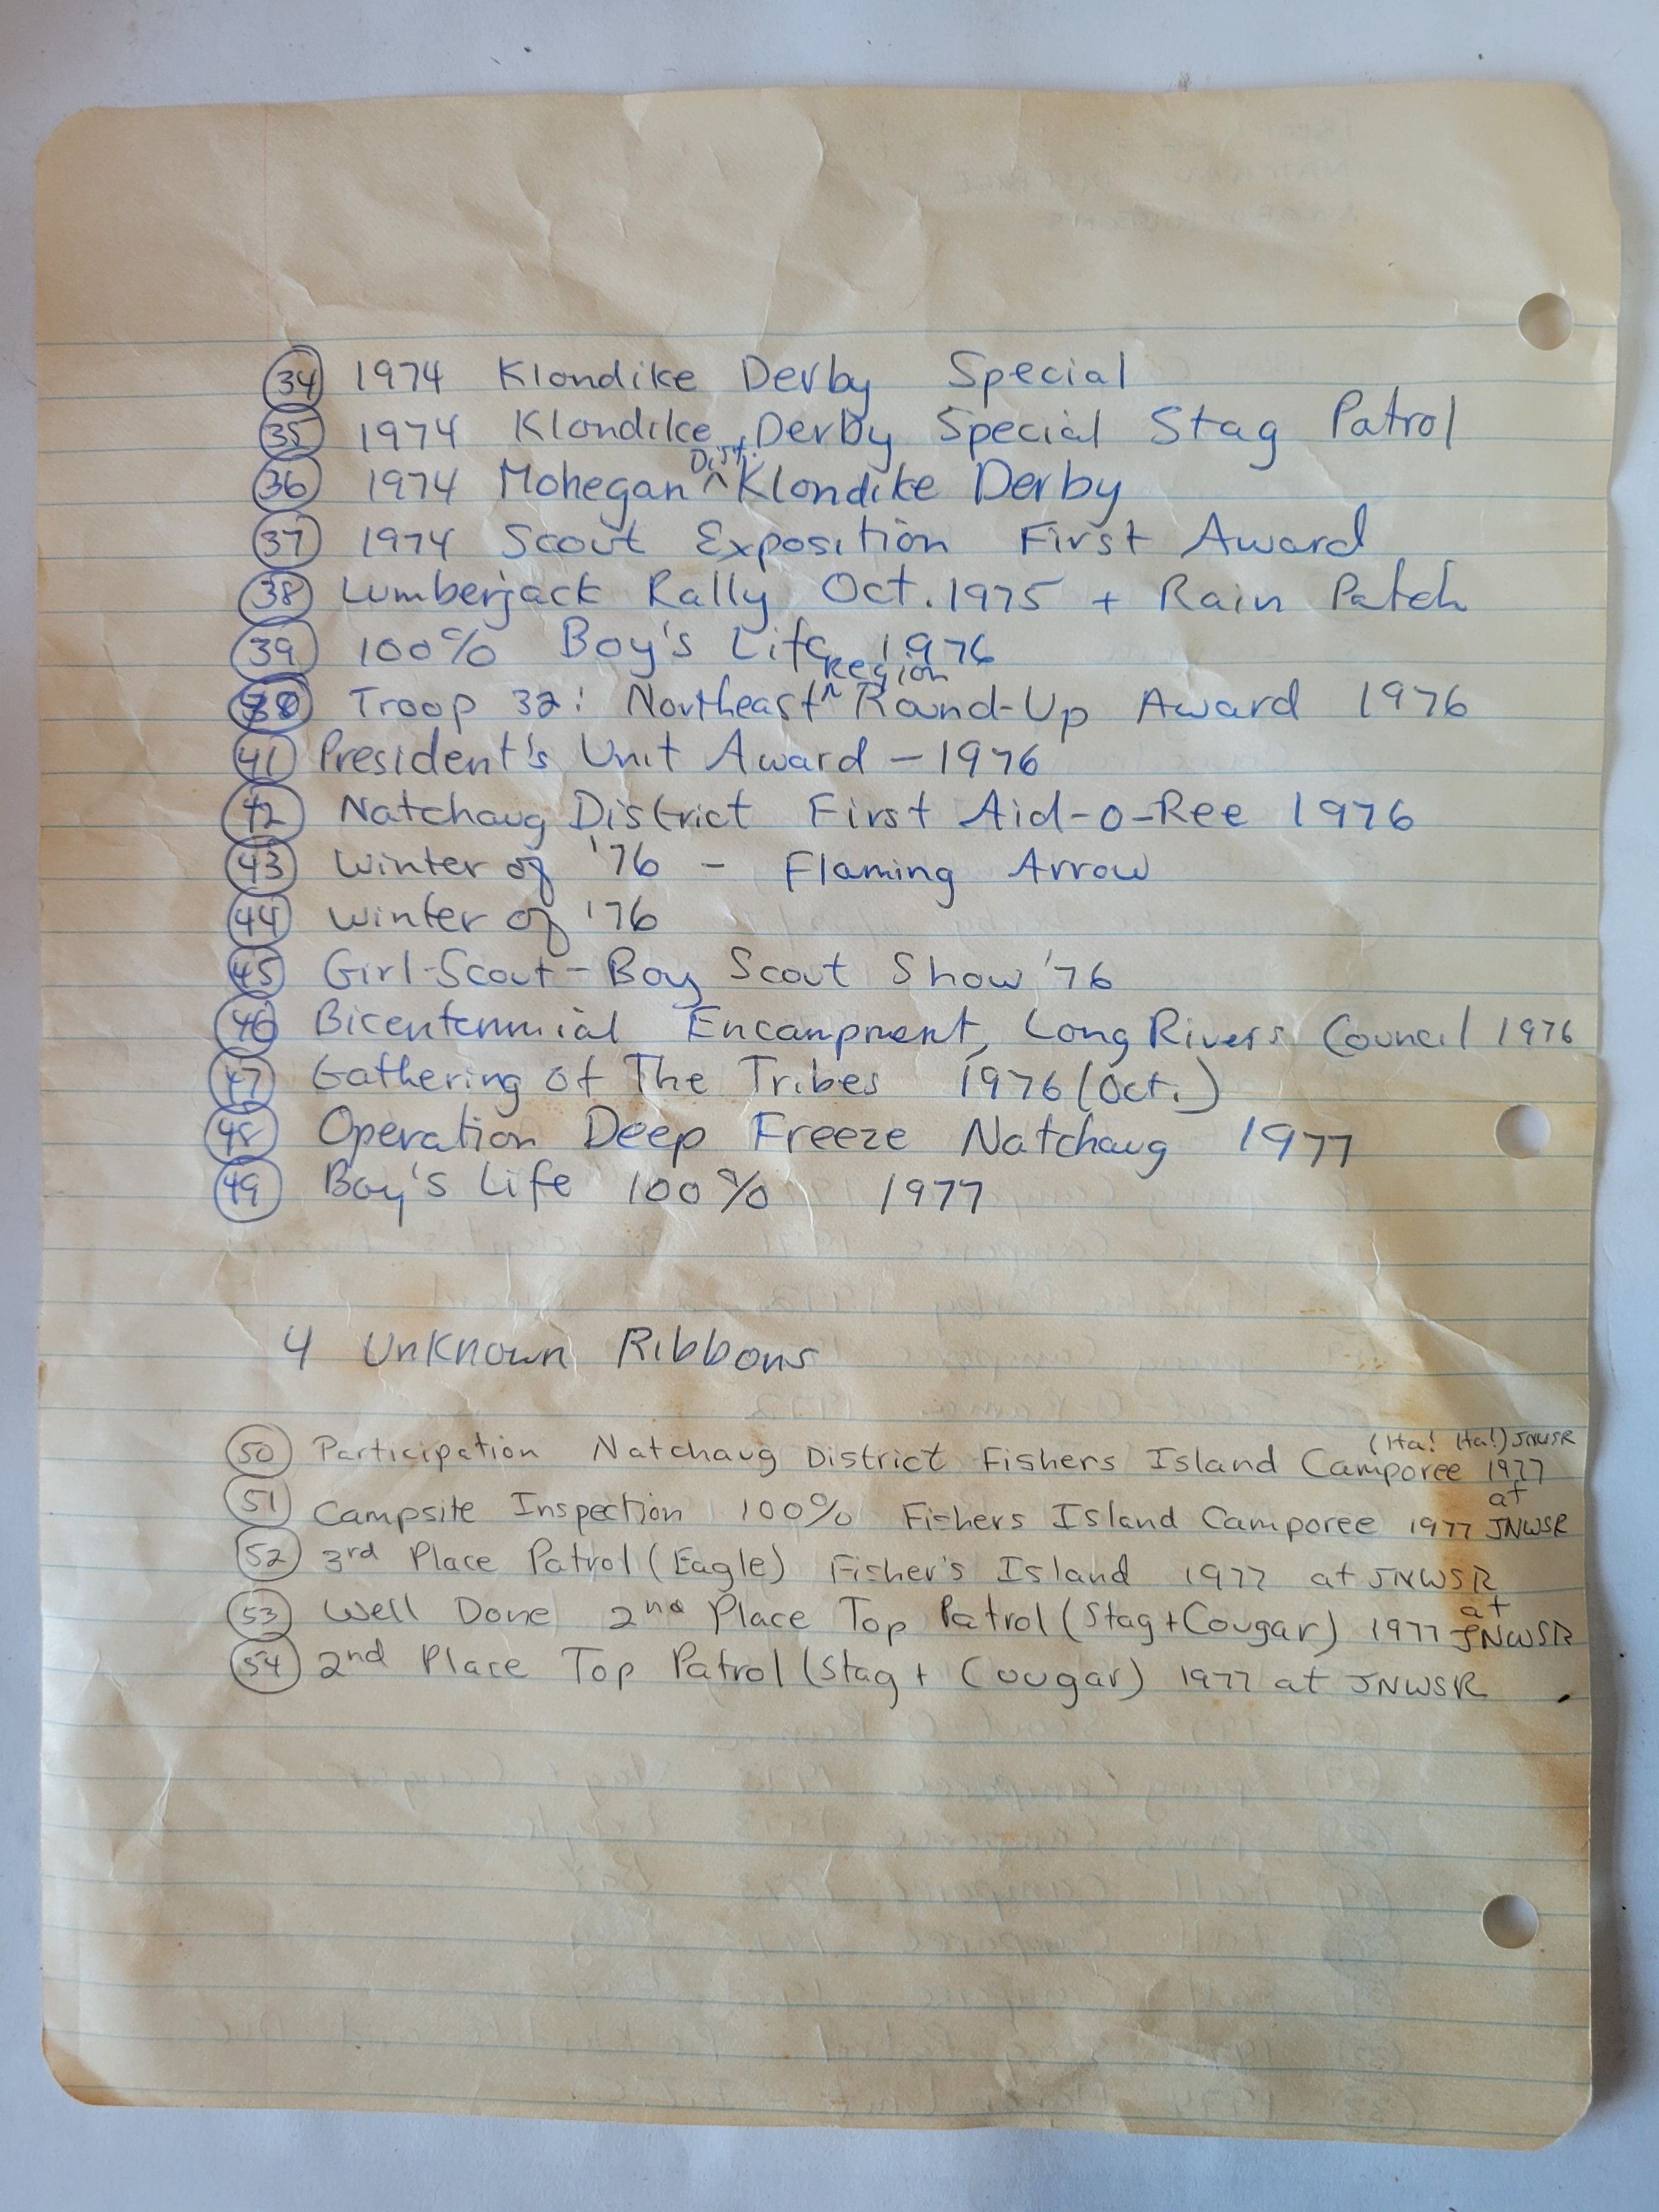 34 1974 Klondike Derby Special
35 1974 Klondike Derby Special Stag Patrol
36 1974 Mohegan Dist. Klondike Derby
37 1974 Scout Exposition First Award
38 Lumberjack Rally Oct. 1975 + Rain Patch
39 100% Boy's Life 1976
Troop 32: Northeast Region Round-Up Award 1976
41 President's Unit Award - 1976
42 Natchaug District First Aid-o-Ree 1976
43 Winter of '76 - Flaming Arrow
44 Winter of '76
45 Girl-Scout-Boy Scout Show '76
46 Bicentennial Encampment, Long Rivers Council 1976
47 Gathering of The Tribes 1976 (Oct.)
48 Operation Deep Freeze Natchaug 1977
49 Boy's Life 100% 1977
4 Unknown Ribbons
50 Participation Natchaug District Fishers Island Camporee 1977 (Ha! Ha!) JNWSR
51 Campsite Inspection 100% Fishers Island Camporee 1977 at JNWSR
52 3rd Place Patrol (Eagle) Fisher's Island 1977 at JNWSR
53 Well Done 2nd Place Top Patrol (Stag + Cougar) 1977 at JNWSR
54 2nd Place Top Patrol (Stag + Cougar) 1977 at JNWSR